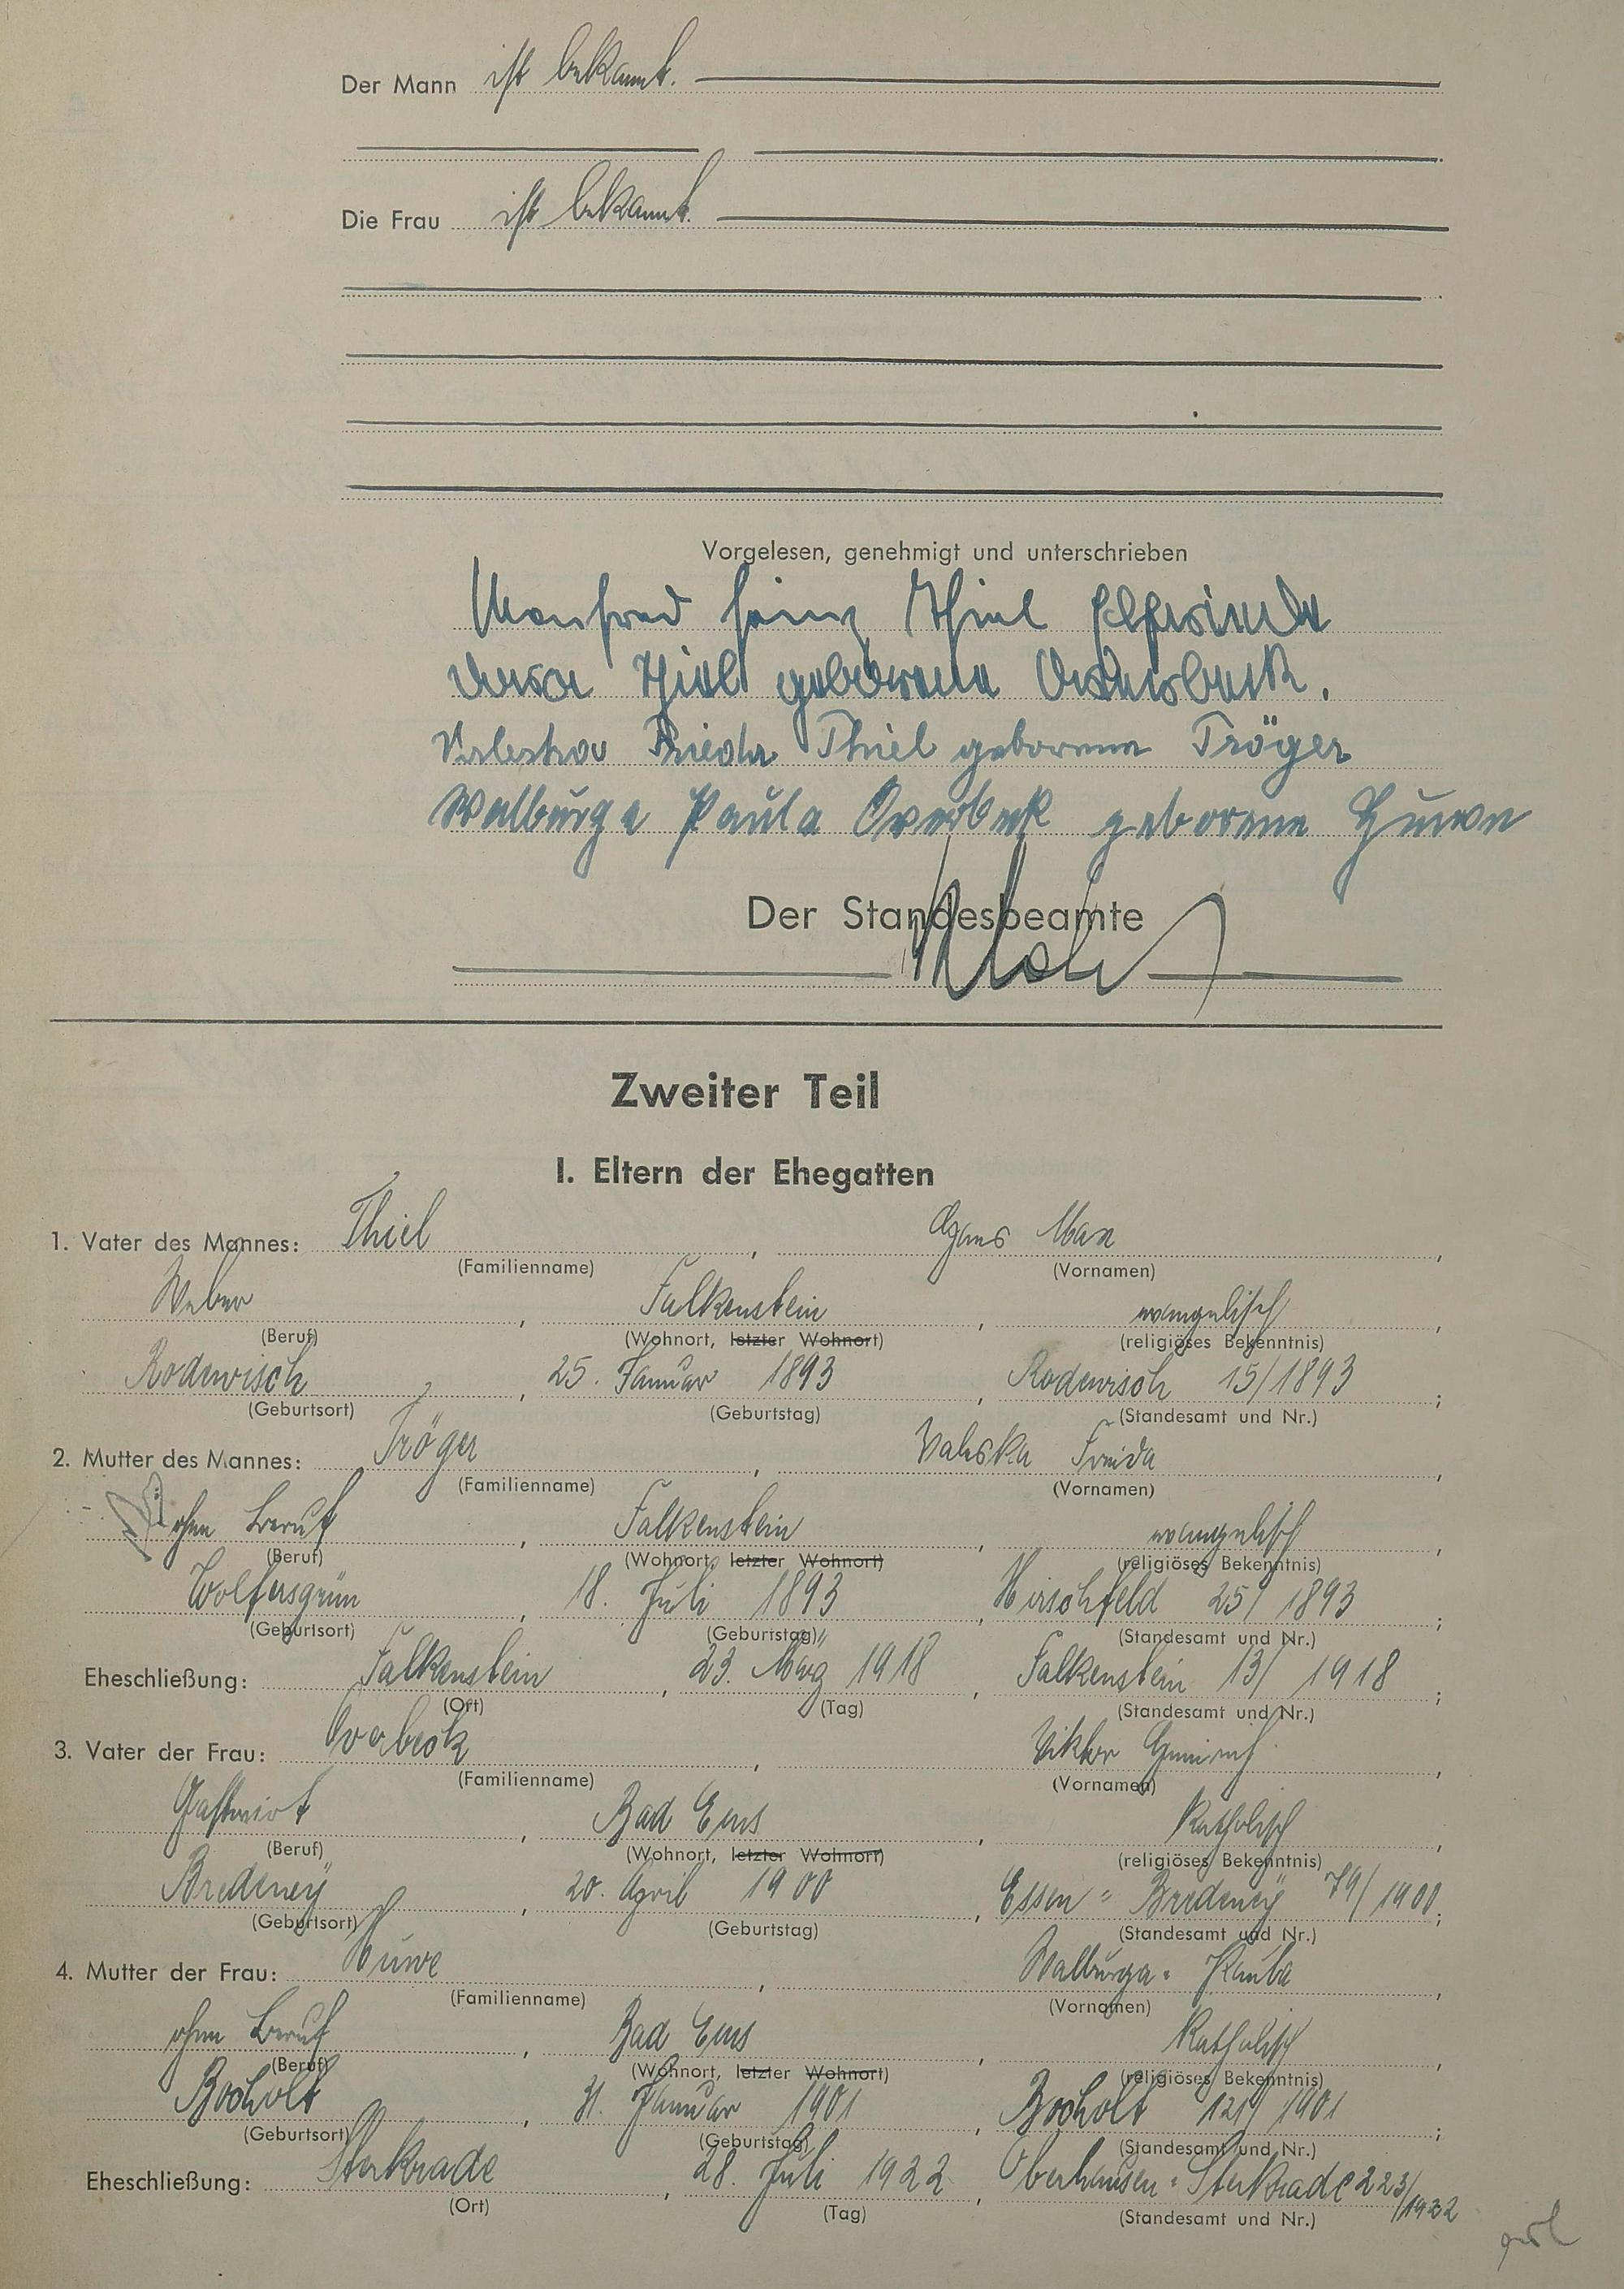 Der Mann ist bekannt.
Die Frau ist bekannt.
Vorgelesen, genehmigt und unterschrieben
Manfred Heinz Thiel
Thiel geborene Overbeck.
Frieda Thiel geborene Tröger
Walburga Paula Overbeck geborene Huwe
Der Standesbeamte
Zweiter Teil
I. Eltern der Ehegatten
1. Vater des Mannes: Thiel, Max
(Familienname) (Vornamen)
Weber, Falkenstein, evangelisch,
(Beruf) (Wohnort, letzter Wohnort) (religiöses Bekenntnis)
Rodewisch, 25. Januar 1893, Rodewisch 15/1893;
(Geburtsort) (Geburtstag) (Standesamt und Nr.)
2. Mutter des Mannes: Tröger, Valeska Frieda,
(Familienname) (Vornamen)
ohne Beruf, Falkenstein, evangelisch,
(Beruf) (Wohnort, letzter Wohnort) (religiöses Bekenntnis)
Wolfersgrün, 18. Juli 1893, Hirschfeld 25/1893;
(Geburtsort) (Geburtstag) (Standesamt und Nr.)
Eheschließung: Falkenstein, 23. März 1918, Falkenstein 13/1918;
(Ort) (Tag) (Standesamt und Nr.)
3. Vater der Frau: Overbeck, Viktor Heinrich,
(Familienname) (Vornamen)
Gastwirt, Bad Ems, katholisch,
(Beruf) (Wohnort, letzter Wohnort) (religiöses Bekenntnis)
Bredeney, 20. April 1900, Essen-Bredeney 79/1900;
(Geburtsort) (Geburtstag) (Standesamt und Nr.)
4. Mutter der Frau: Huwe, Walburga Paula,
(Familienname) (Vornamen)
ohne Beruf, Bad Ems, katholisch,
(Beruf) (Wohnort, letzter Wohnort) (religiöses Bekenntnis)
Bocholt, 31. Januar 1901, Bocholt 121/1901;
(Geburtsort) (Geburtstag) (Standesamt und Nr.)
Eheschließung: Sterkrade, 28. Juli 1922, Oberhausen-Sterkrade 223/1922
(Ort) (Tag) (Standesamt und Nr.)